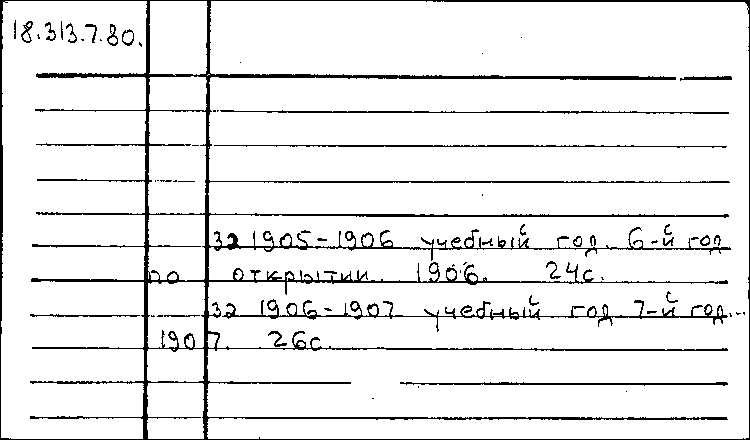 18.313.7.80.
За 1905-1906 учебный год. 6-й год
по открытии. 1906. 24с.
За 1906-1907 учебный год 7-й год...
1907. 26с.